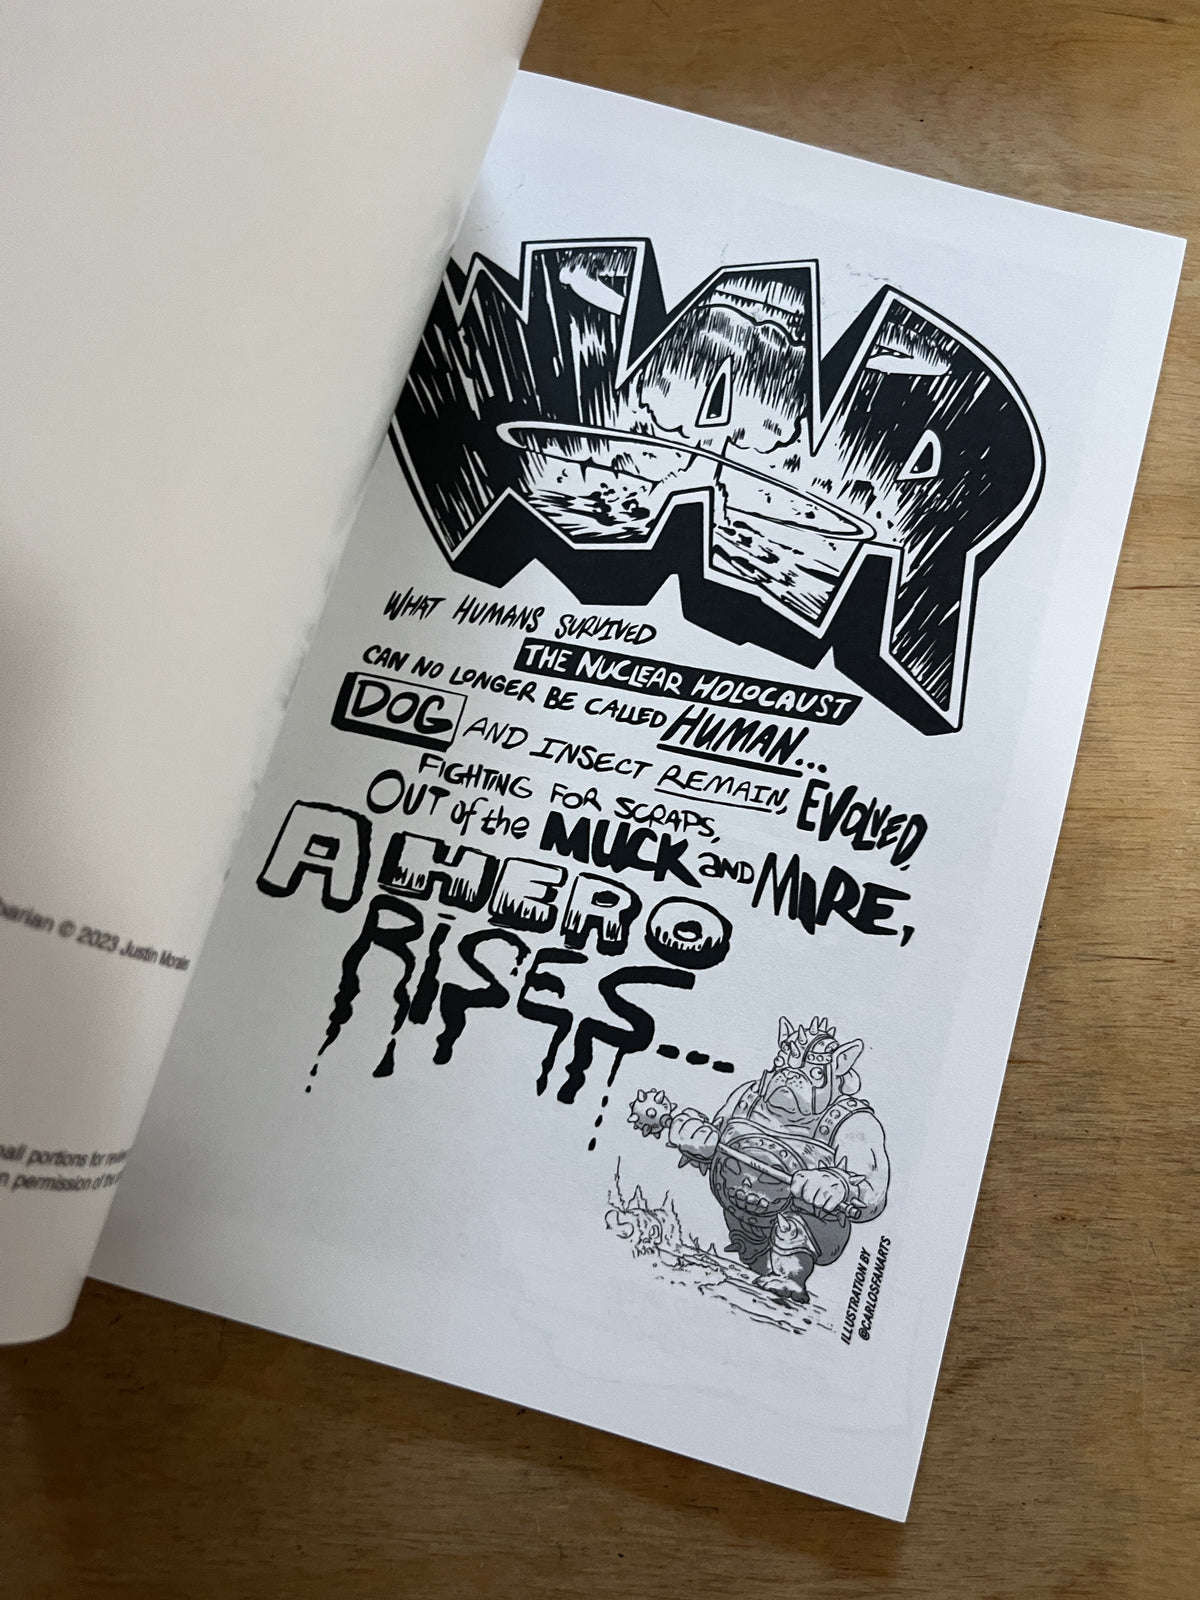 WAR
WHAT HUMANS SURVIVED
THE NUCLEAR HOLOCAUST
CAN NO LONGER BE CALLED HUMAN...
DOG AND INSECT REMAIN, EVOLVED,
FIGHTING FOR SCRAPS,
OUT of the MUCK AND MIRE,
A HERO
RISES...
ILLUSTRATION BY
@CARLOSFANARTS
© 2023 Justin Morales
portions for
permission of